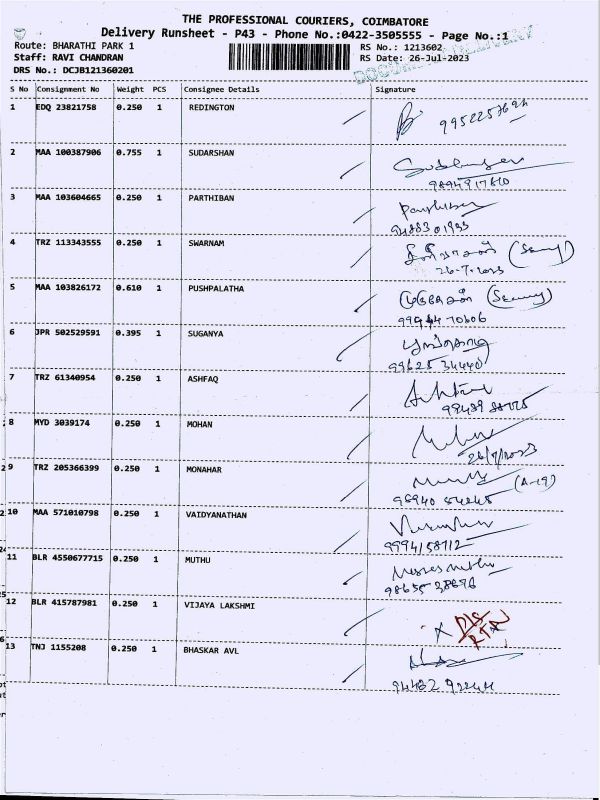 THE PROFESSIONAL COURIERS, COIMBATORE
Delivery Runsheet - P43 - Phone No.:0422-3505555 - Page No.:1
Route: BHARATHI PARK 1 RS No.: 1213602
Staff: RAVI CHANDRAN RS Date: 26-Jul-2023
DRS No.: DCJB121360201
S No Consignment No Weight PCS Consignee Details Signature
1 EDQ 23821758 0.250 1 REDINGTON
2 MAA 100387906 0.755 1 SUDARSHAN
3 MAA 103604665 0.250 1 PARTHIBAN
94883 01933
4 TRZ 113343555 0.250 1 SWARNAM
26-7-2023
5 MAA 103826172 0.610 1 PUSHPALATHA
6 JPR 502529591 0.395 1 SUGANYA
99625 34440
7 TRZ 61340954 0.250 1 ASHFAQ
8 MYD 3039174 0.250 1 MOHAN
26/7/2023
9 TRZ 205366399 0.250 1 MONAHAR
(A-19)
10 MAA 571010798 0.250 1 VAIDYANATHAN
9994158712
11 BLR 4550677715 0.250 1 MUTHU
98655 38696
12 BLR 415787981 0.250 1 VIJAYA LAKSHMI
X D/S
RTN
13 TNJ 1155208 0.250 1 BHASKAR AVL